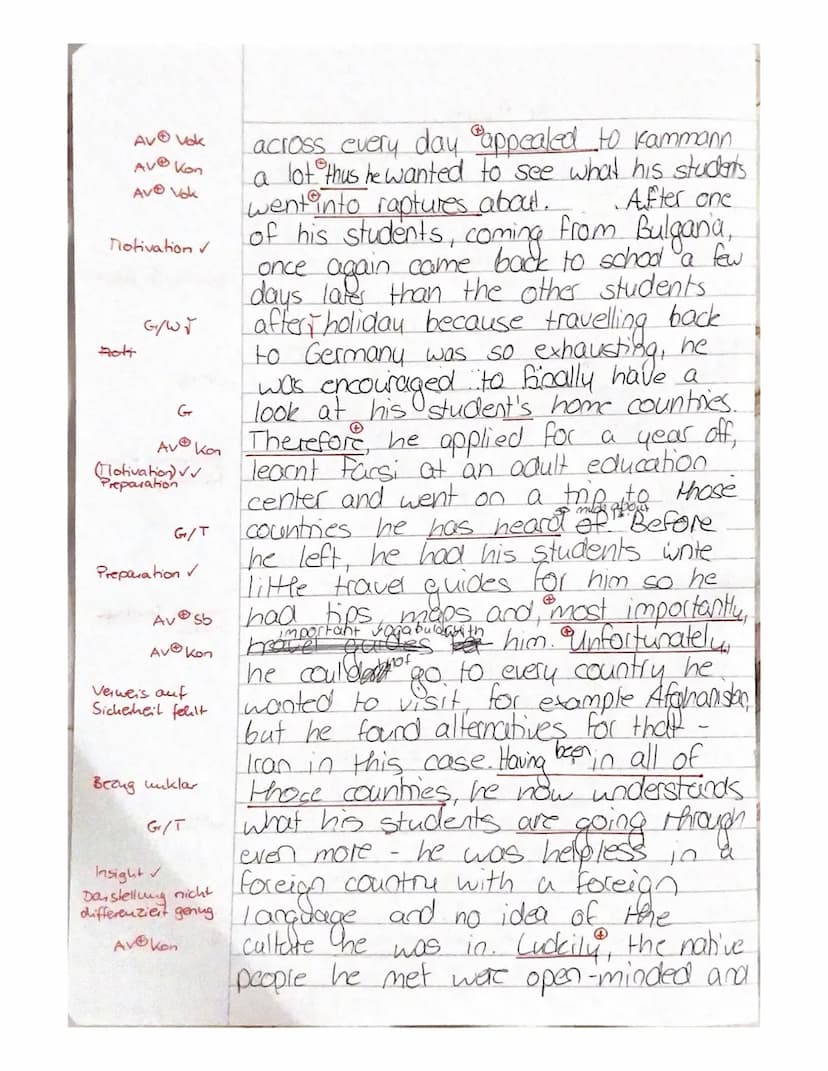 AV⊕ Vok across every day ⊕appealed to Kammann
AV⊕ Kon a lot ⊕thus he wanted to see what his students
AV⊕ Vok went ⊕into raptures about. After one
Motivation ✓ of his students, coming from Bulgaria,
once again came back to school a few
days later than the other students
G/W after holiday because travelling back
to Germany was so exhausting, he
was encouraged to finally have a
G look at his student's home countries.
AV⊕ Kon ⊕Therefore, he applied for a year off,
(Motivation) ✓✓ learnt Farsi at an adult education
Preparation center and went on a trip to those
so much about
G/T countries he has heard of. Before
he left, he had his students write
Preparation ✓ little travel guides for him so he
AV⊕ Sb had tips, maps and, ⊕most importantly,
important vocabulary with
AV⊕ Kon travel guides him. ⊕Unfortunately,
he could not go to every country he
Verweis auf wanted to visit, for example Afghanistan,
Sicherheit fehlt but he found alternatives for that -
Iran in this case. Having been in all of
Bezug unklar those countries, he now understands
G/T what his students are going through
even more - he was helpless in a
Insight ✓ foreign country with a foreign
Darstellung nicht
differenziert genug language and no idea of the
AV⊕ Kon culture he was in. Luckily⊕, the native
people he met were open-minded and